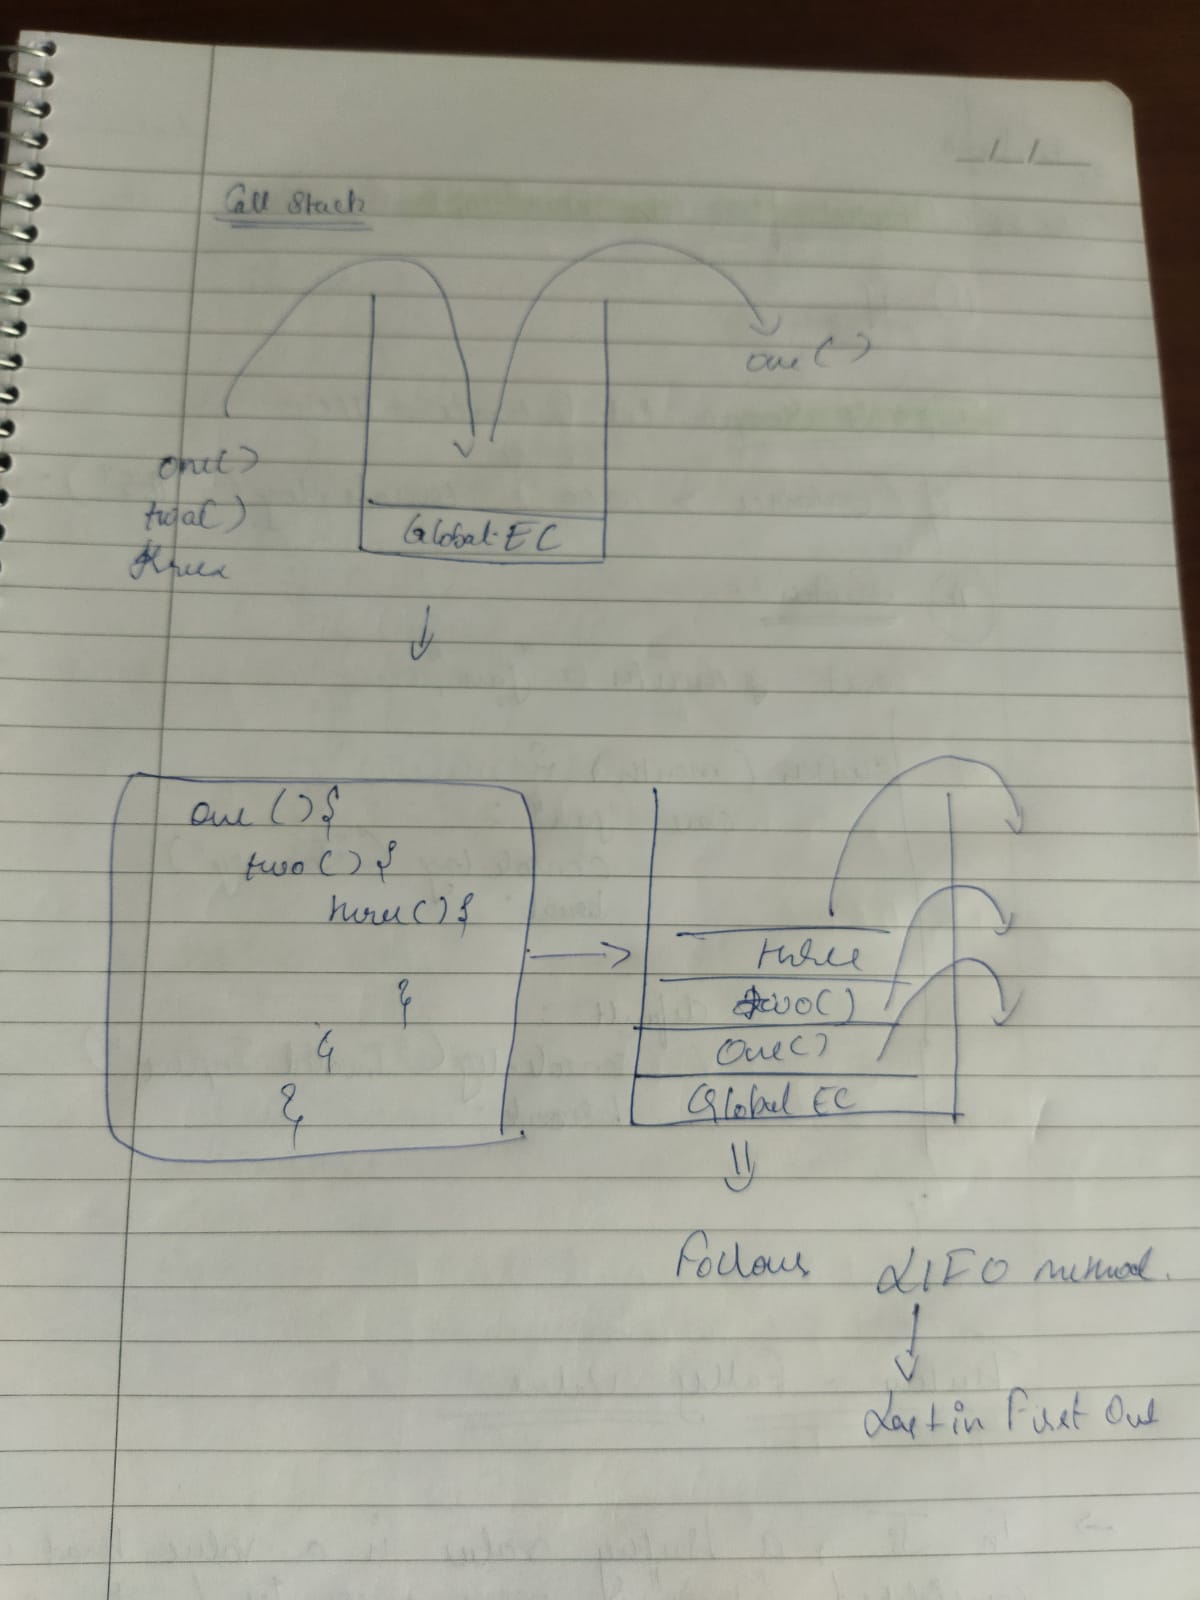 Call Stack
one()
one()
two()
three
Global EC
one(){
two(){
three(){
}
}
}
three
two()
One()
Global EC
Follows LIFO method.
Last in First Out